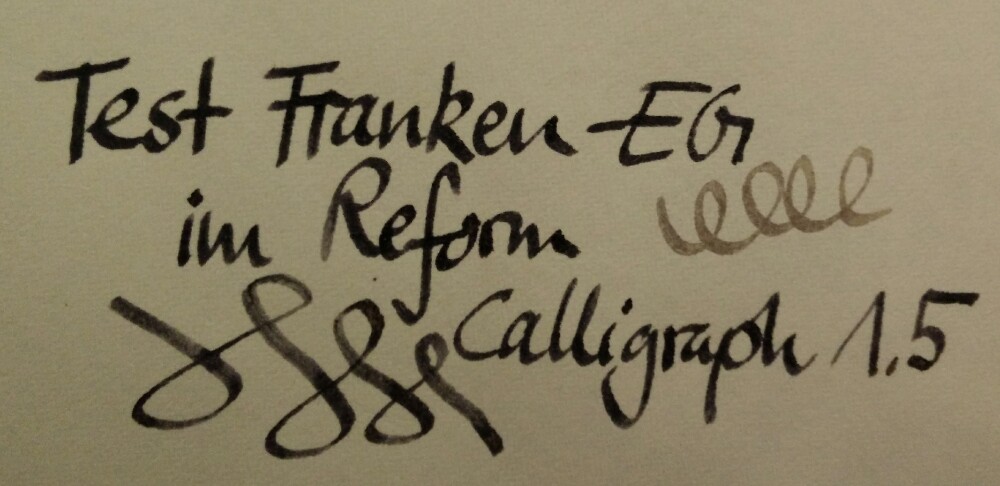 Test Franken-EG
im Reform
Calligraph 1.5